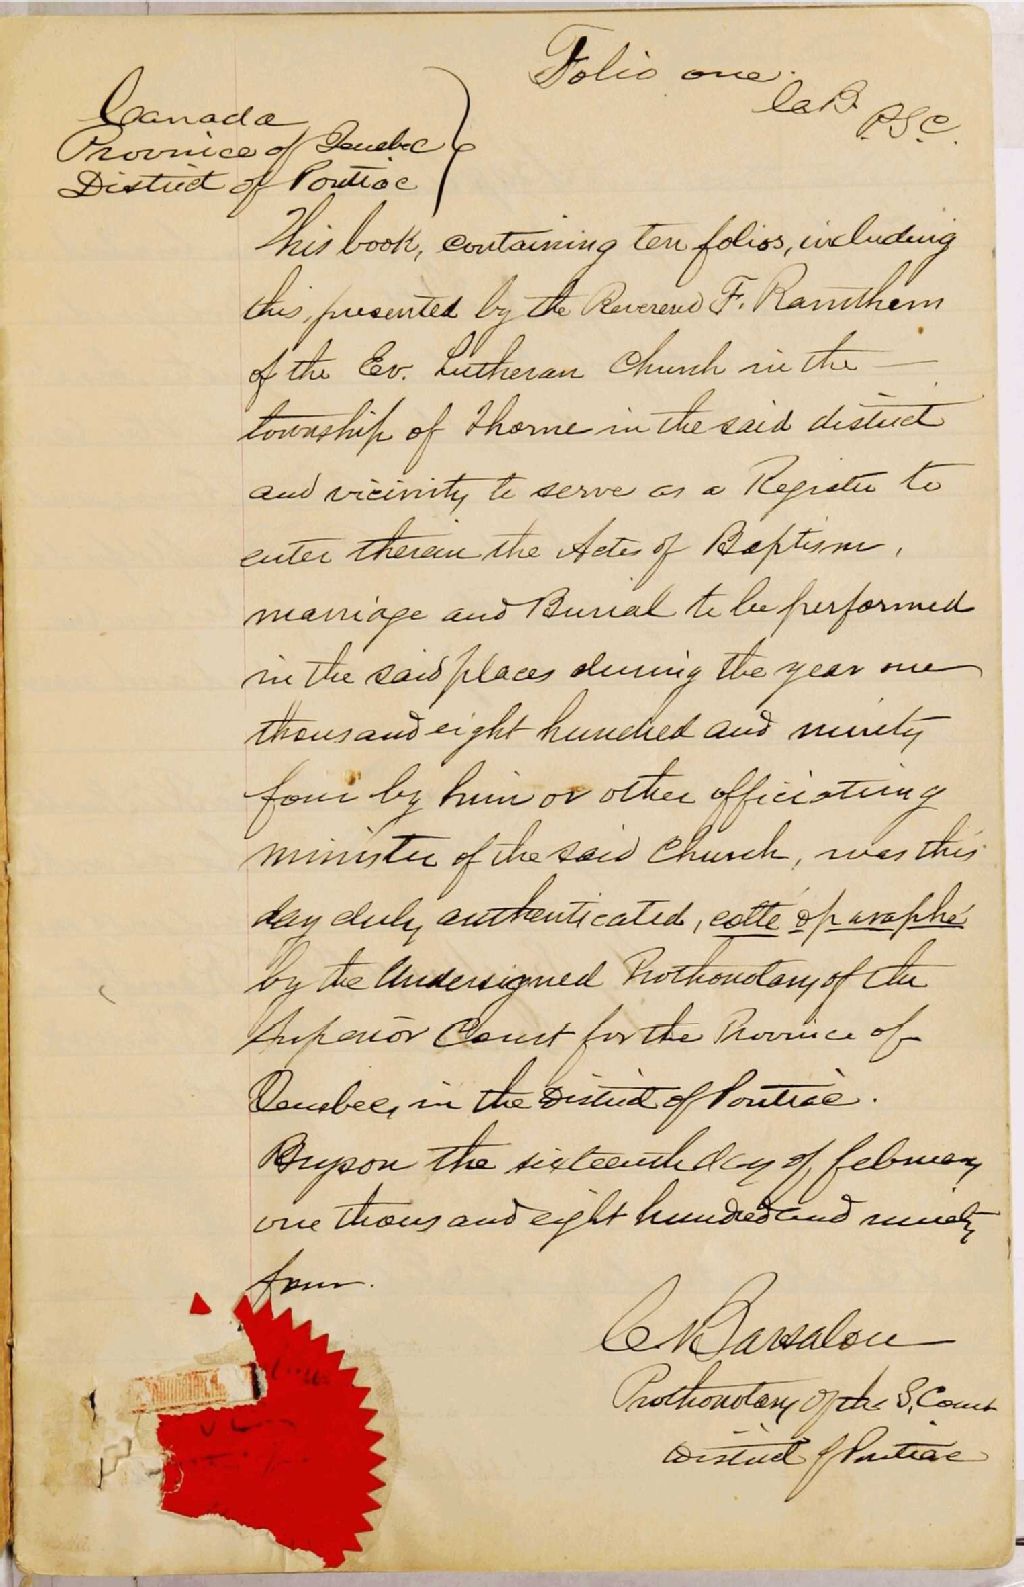 Folio one.
C a B.
P.S.C.
Canada
Province of Quebec
District of Pontiac
This book, containing ten folios, including
this, presented by the Reverend F. Ramthem
of the Ev. Lutheran Church in the —
township of Thorne in the said district
and vicinity to serve as a Register to
enter therein the Actes of Baptism,
marriage and Burial to be performed
in the said places during the year one
thousand eight hundred and ninety
four by him or other officiating
minister of the said Church, was this
day duly authenticated, cotté & paraphé
by the Undersigned Prothonotary of the
Superior Court for the Province of
Quebec, in the District of Pontiac.
Bryson the sixteenth day of february
one thousand eight hundred and ninety
four.
Barsalou
Prothonotary of the S. Court
District of Pontiac